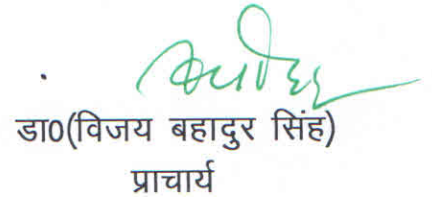 डा0(विजय बहादुर सिंह)
प्राचार्य